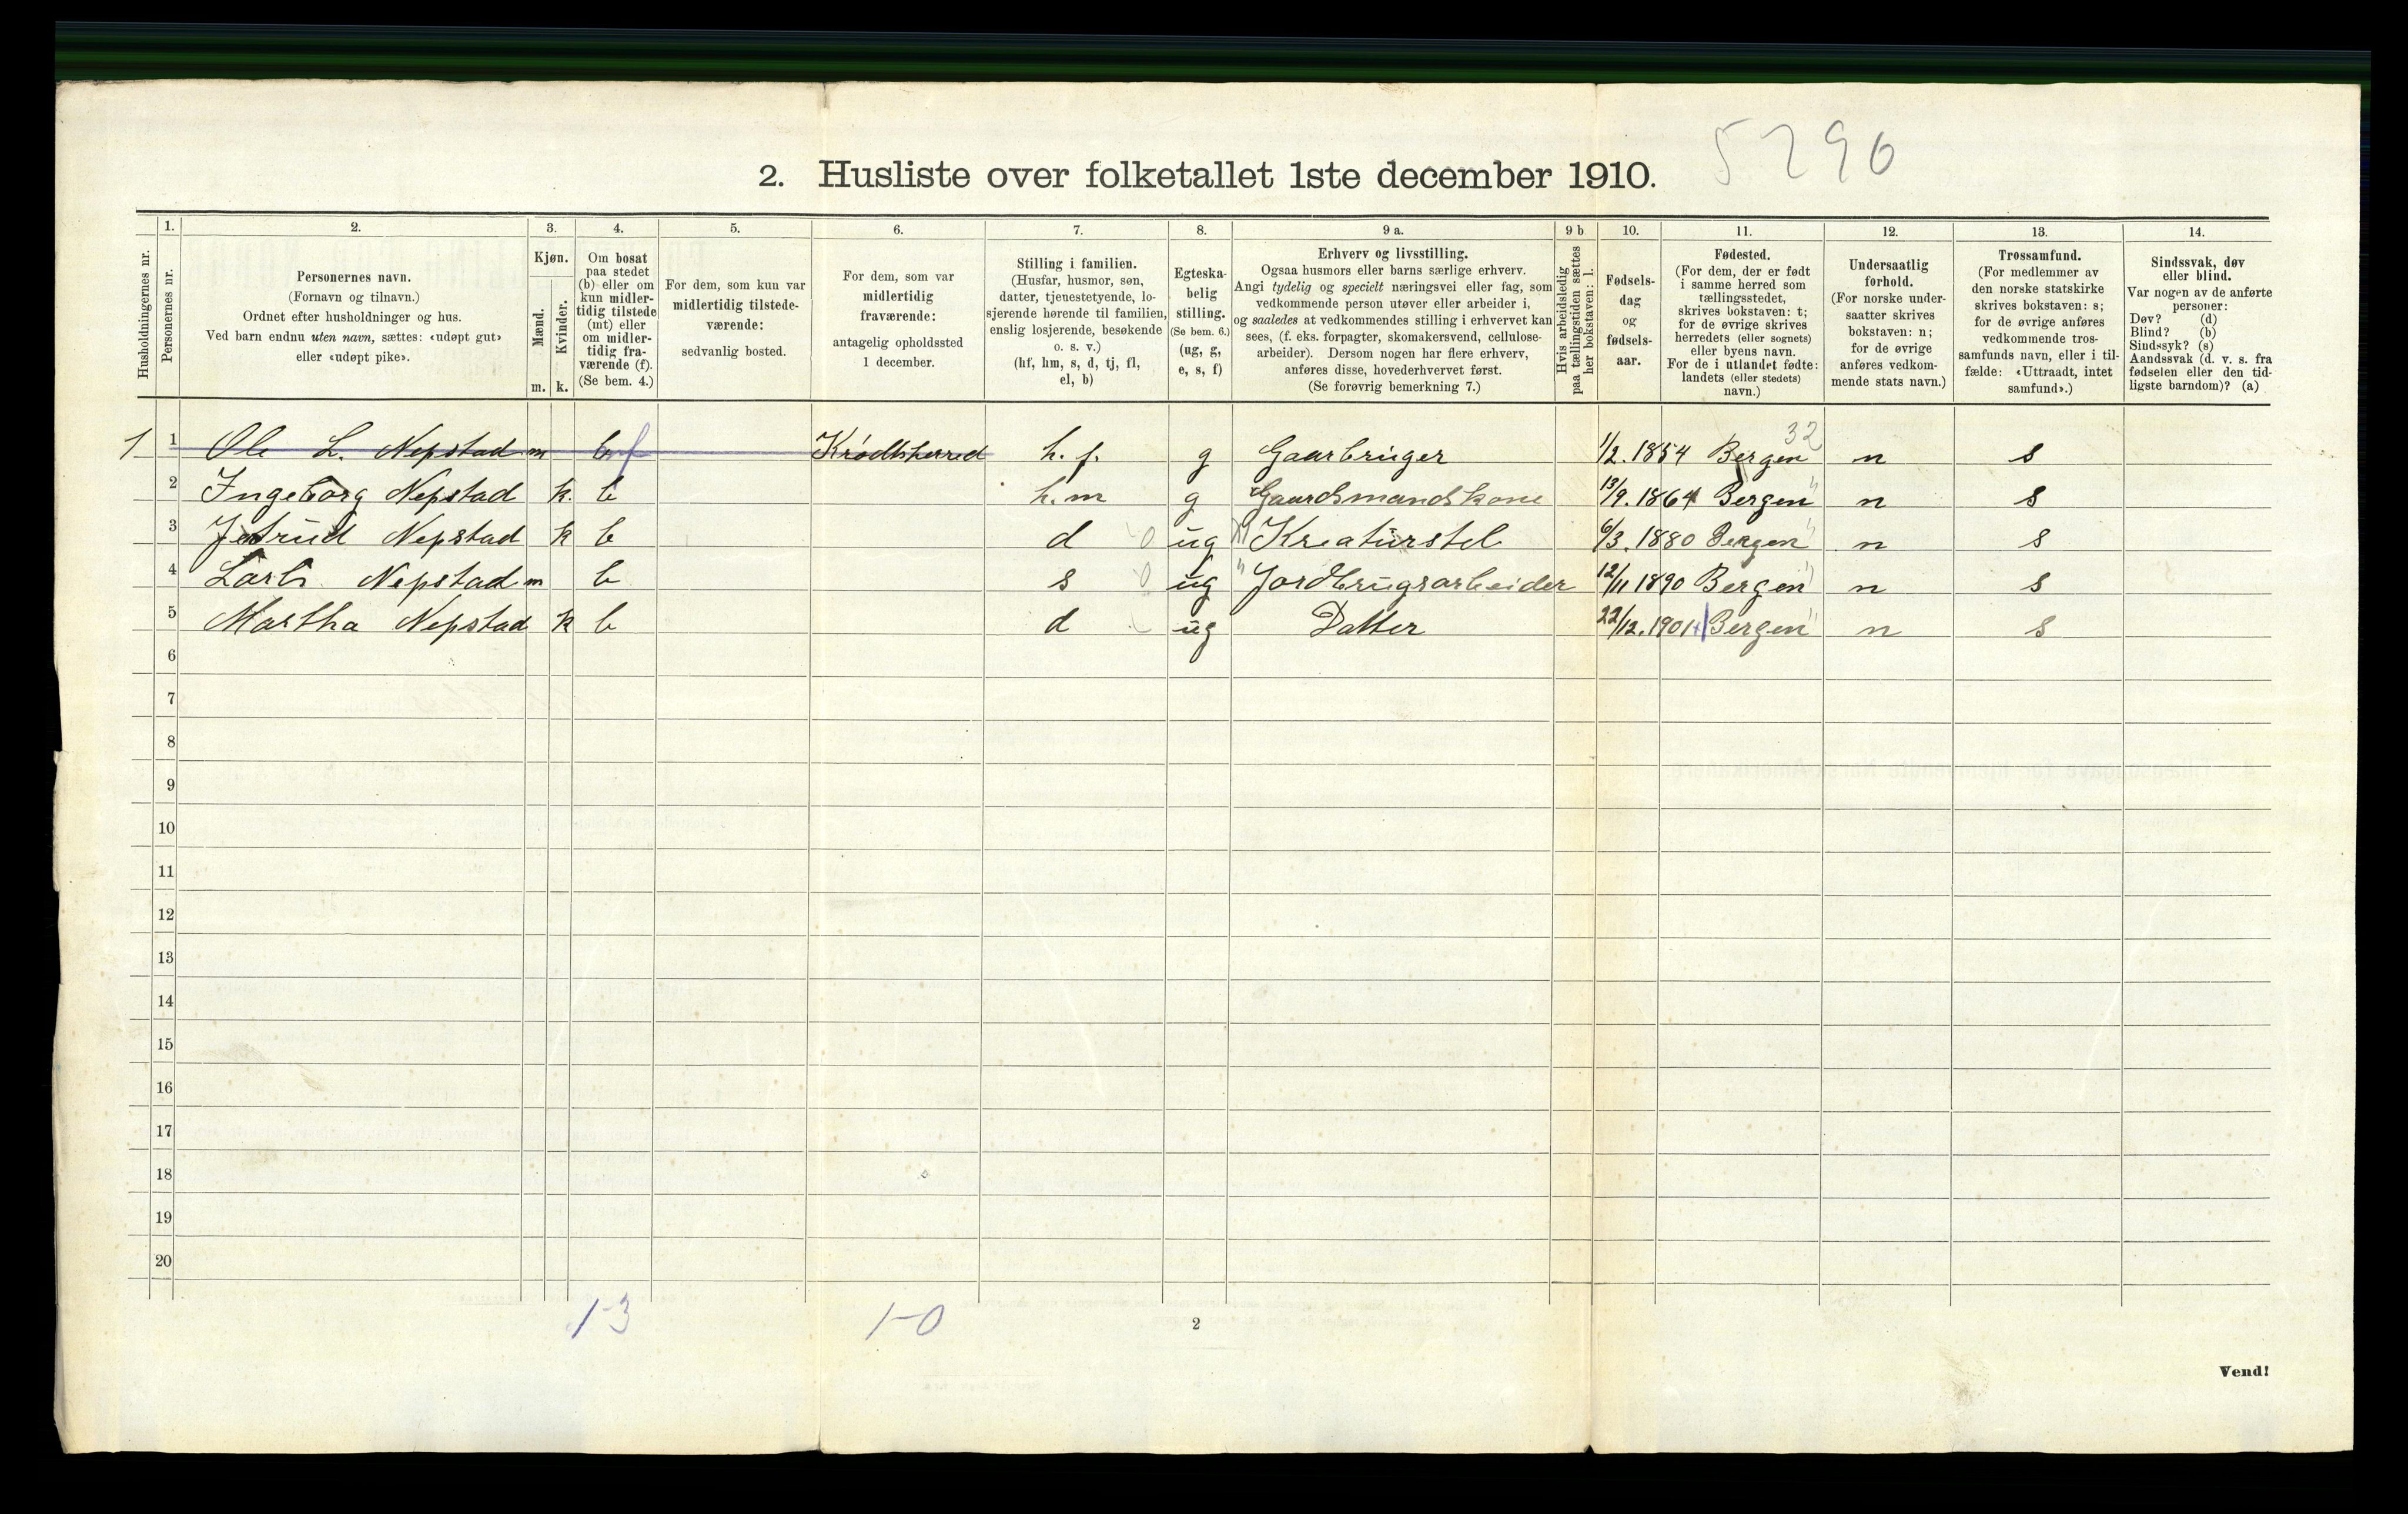 5290
2. Husliste over folketallet 1ste december 1910.
Husholdningernes nr.
1.
Personernes nr.
2.
Personernes navn.
(Fornavn og tilnavn.)
Ordnet efter husholdninger og hus.
Ved barn endnu uten navn, sættes: «udøpt gut»
eller «udøpt pike».
3.
Kjøn.
Mænd.
m.
Kvinder.
k.
4.
Om bosat
paa stedet
(b) eller om
kun midler-
tidig tilstede
(mt) eller
om midler-
tidig fra-
værende (f).
(Se bem. 4.)
5.
For dem, som kun var
midlertidig tilstede-
værende:
sedvanlig bosted.
6.
For dem, som var
midlertidig
fraværende:
antagelig opholdssted
1 december.
7.
Stilling i familien.
(Husfar, husmor, søn,
datter, tjenestetyende, lo-
sjerende hørende til familien,
enslig losjerende, besøkende
o. s. v.)
(hf, hm, s, d, tj, fl,
el, b)
8.
Egteska-
belig
stilling.
(Se bem. 6.)
(ug, g,
e, s, f)
9 a.
Erhverv og livsstilling.
Ogsaa husmors eller barns særlige erhverv.
Angi tydelig og specielt næringsvei eller fag, som
vedkommende person utøver eller arbeider i,
og saaledes at vedkommendes stilling i erhvervet kan
sees, (f. eks. forpagter, skomakersvend, cellulose-
arbeider). Dersom nogen har flere erhverv,
anføres disse, hovederhvervet først.
(Se forøvrig bemerkning 7.)
9 b
Hvis arbeidsledig
paa tællingstiden sættes
her bokstaven: l.
10.
Fødsels-
dag
og
fødsels-
aar.
11.
Fødested.
(For dem, der er født
i samme herred som
tællingsstedet,
skrives bokstaven: t;
for de øvrige skrives
herredets (eller sognets)
eller byens navn.
For de i utlandet fødte:
landets (eller stedets)
navn.)
12.
Undersaatlig
forhold.
(For norske under-
saatter skrives
bokstaven: n;
for de øvrige
anføres vedkom-
mende stats navn.)
13.
Trossamfund.
(For medlemmer av
den norske statskirke
skrives bokstaven: s;
for de øvrige anføres
vedkommende tros-
samfunds navn, eller i til-
fælde: «Uttraadt, intet
samfund».)
14.
Sindssvak, døv
eller blind.
Var nogen av de anførte
personer:
Døv? (d)
Blind? (b)
Sindssyk? (s)
Aandssvak (d. v. s. fra
fødselen eller den tid-
ligste barndom)? (a)
32
1 1 Ole L. Nepstad m b f Krødsherred h. f. g Gaarbruger 1/2. 1854 Bergen n s
2 Ingeborg Nepstad k. b h. m g Gaardsmandskone 13/9. 1864 Bergen " n s
3 Jetrud Nepstad k b d 0 ug Kreaturstel 6/3. 1880 Bergen " n s
4 Lars Nepstad m b s 0 ug " Jordbrugsarbeider 12/11 1890 Bergen " n s
5 Martha Nepstad k b d ug Datter 22/12. 1901 Bergen " n s
6
7
8
9
10
11
12
13
14
15
16
17
18
19
20
1-3 1-0
2
Vend!